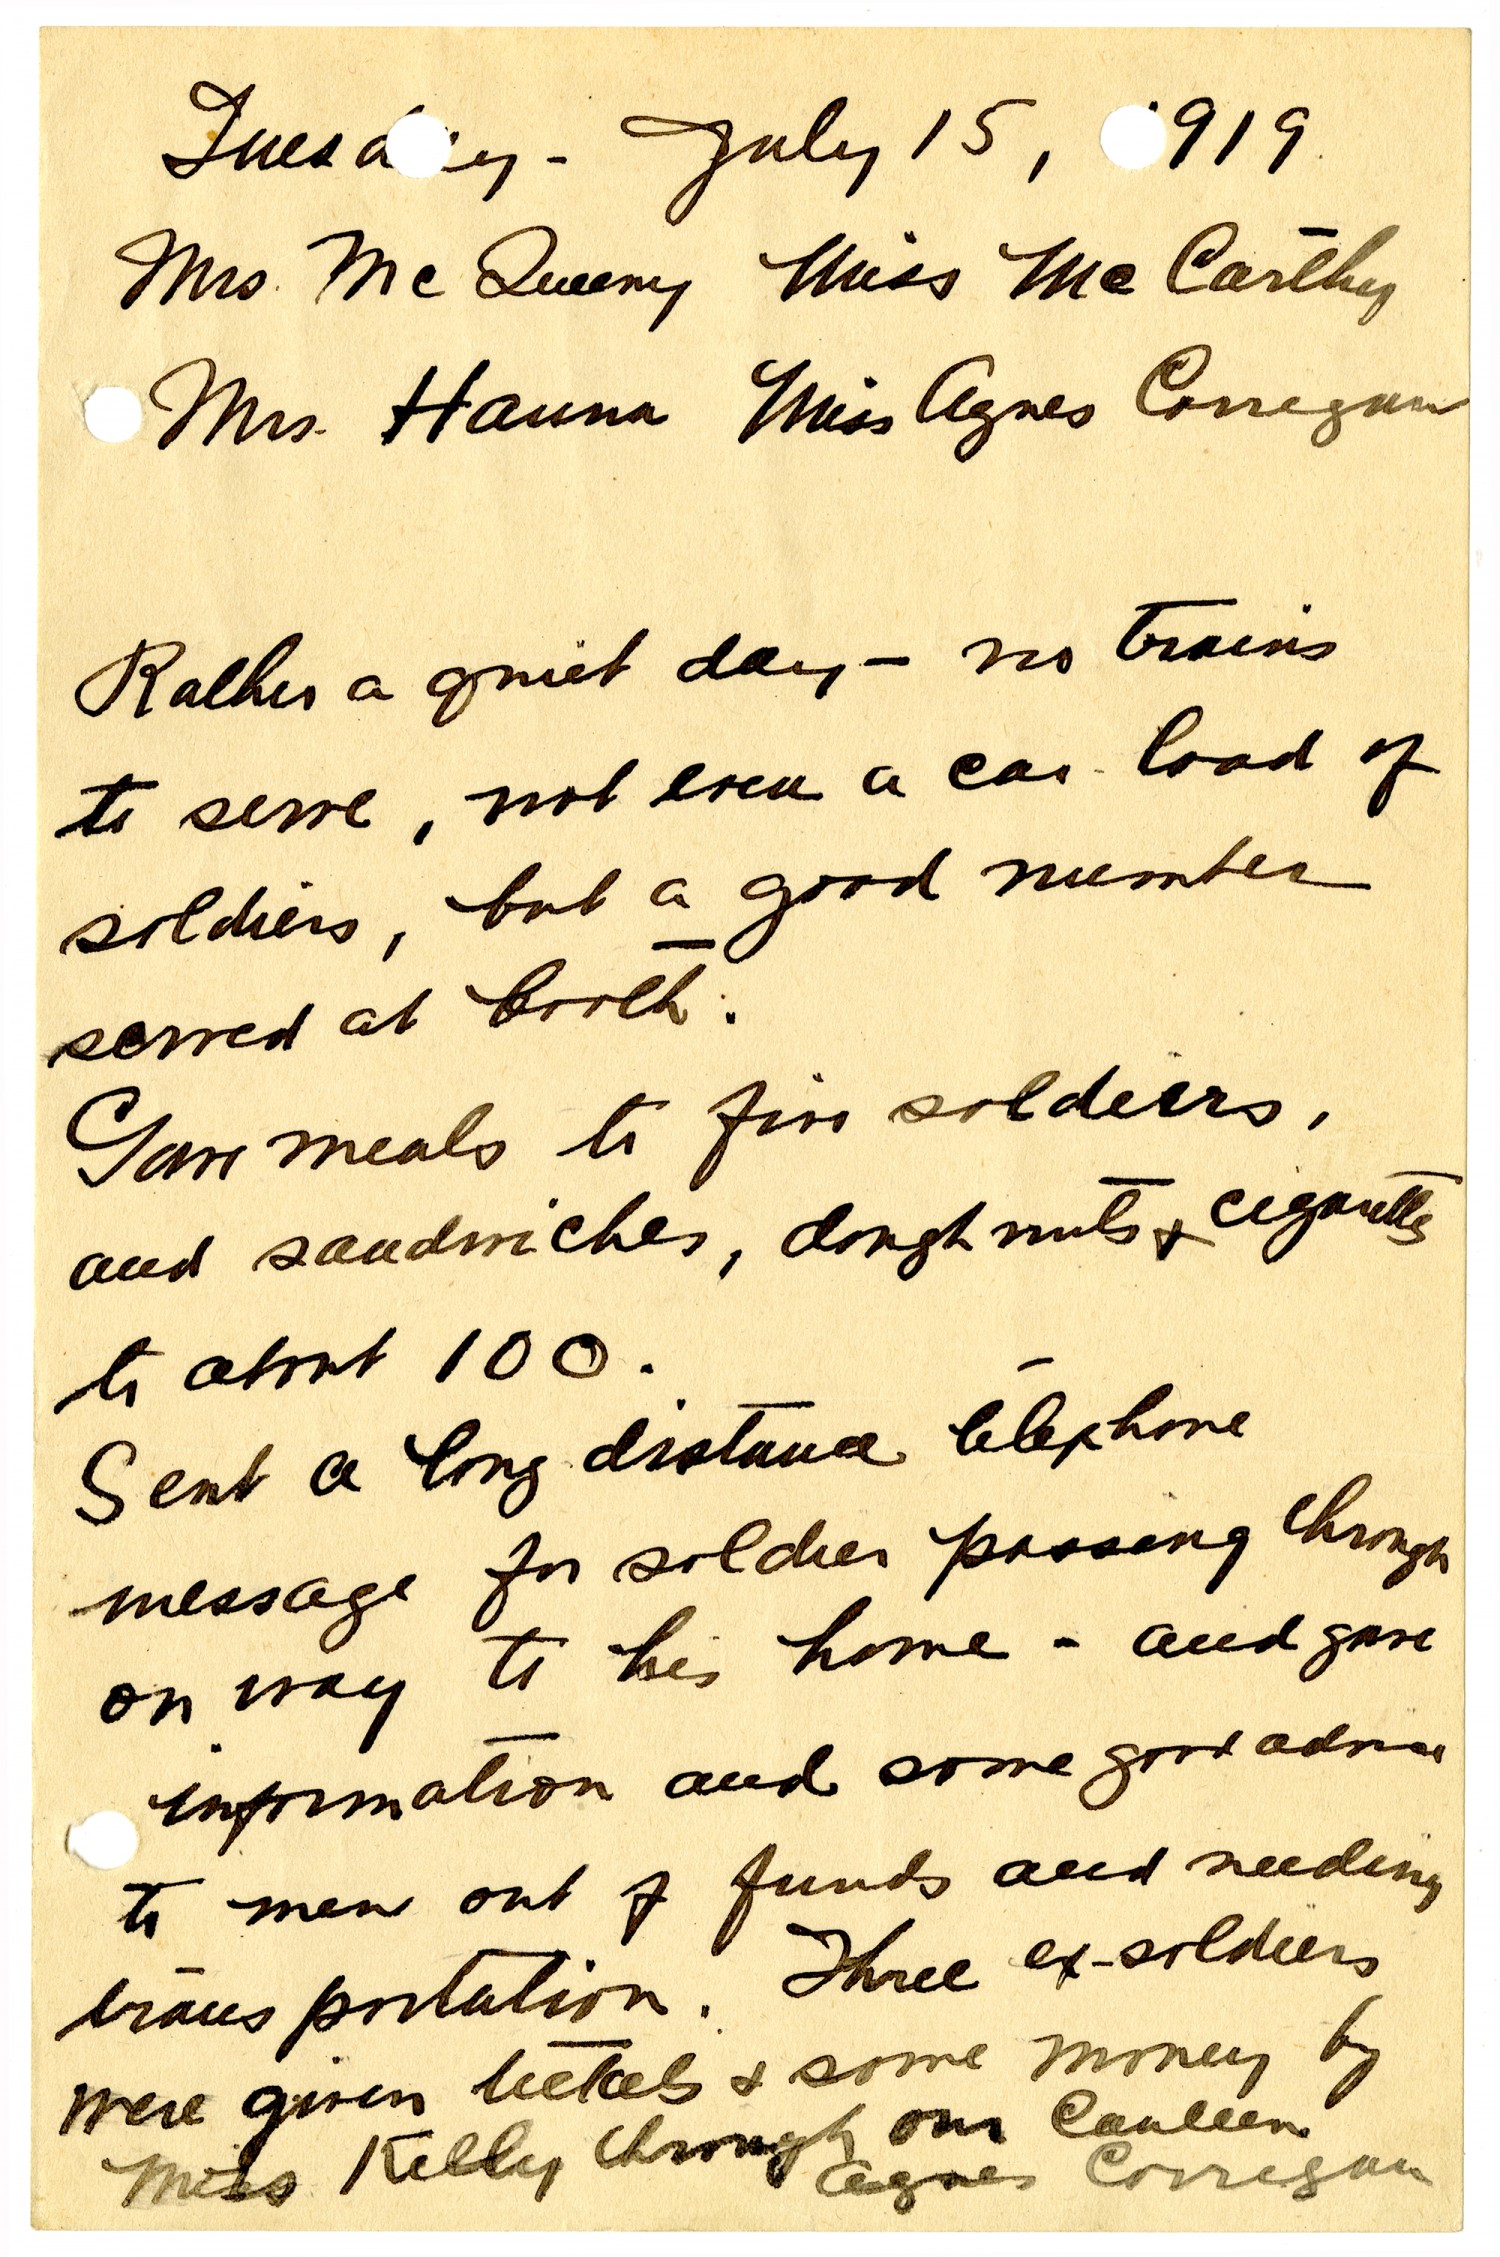 Tuesday - July 15, 1919
Mrs. McQueeny Miss McCarthy
Mrs. Hanna Miss Agnes Corregan
Rather a quiet day - no trains
to serve, not even a car load of
soldiers, but a good number
served at booth.
Gave meals to five soldiers,
and sandwiches, doughnuts & cigarettes
to about 100.
Sent a long distance telephone
message for soldier passing through
on way to his home - and gave
information and some good advice
to men out of funds and needing
transportation. Three ex-soldiers
were given tickets & some money by
Miss Kelly through our Canteen
Agnes Corregan